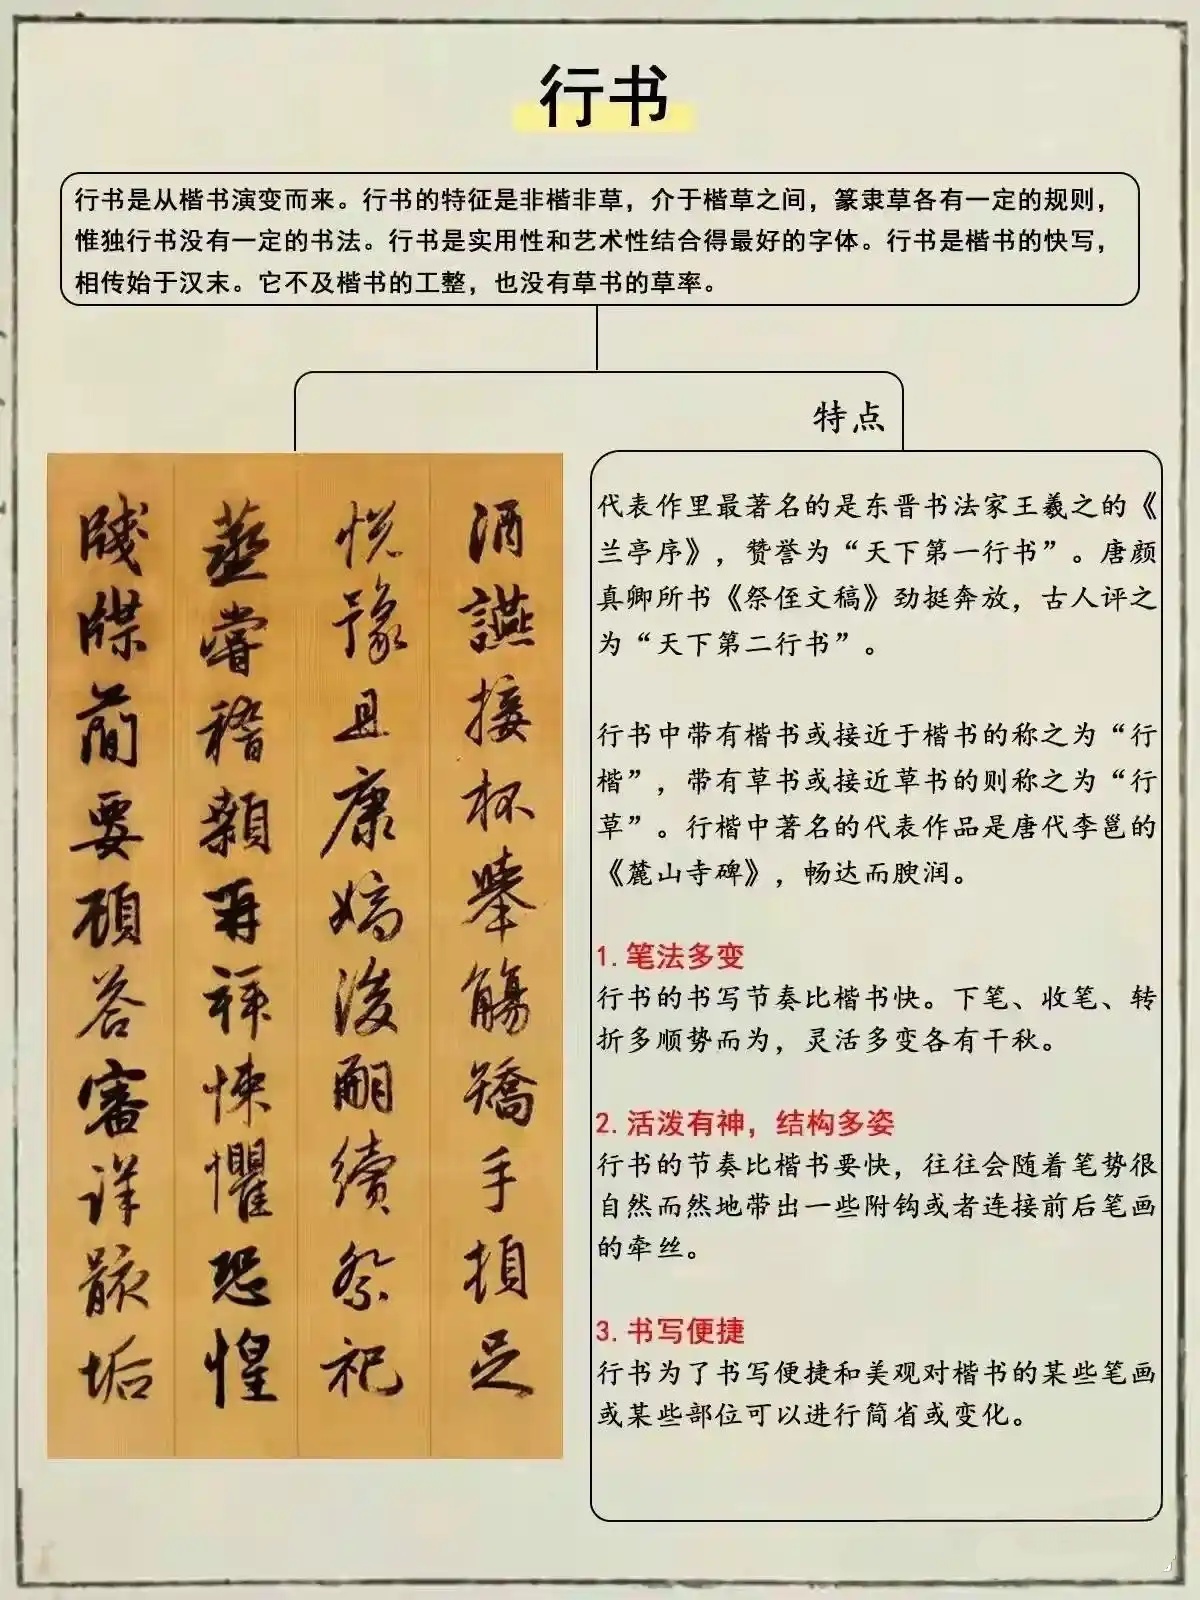 行书
行书是从楷书演变而来。行书的特征是非楷非草，介于楷草之间，篆隶草各有一定的规则，
惟独行书没有一定的书法。行书是实用性和艺术性结合得最好的字体。行书是楷书的快写，
相传始于汉末。它不及楷书的工整，也没有草书的草率。
特点
酒讌接杯舉觴矯手頓足
悅豫且康嫡後嗣續祭祀
蒸嘗稽顙再拜悚懼恐惶
牋牒簡要顧答審詳骸垢
代表作里最著名的是东晋书法家王羲之的《
兰亭序》，赞誉为“天下第一行书”。唐颜
真卿所书《祭侄文稿》劲挺奔放，古人评之
为“天下第二行书”。
行书中带有楷书或接近于楷书的称之为“行
楷”，带有草书或接近草书的则称之为“行
草”。行楷中著名的代表作品是唐代李邕的
《麓山寺碑》，畅达而腴润。
1.笔法多变
行书的书写节奏比楷书快。下笔、收笔、转
折多顺势而为，灵活多变各有千秋。
2.活泼有神，结构多姿
行书的节奏比楷书要快，往往会随着笔势很
自然而然地带出一些附钩或者连接前后笔画
的牵丝。
3.书写便捷
行书为了书写便捷和美观对楷书的某些笔画
或某些部位可以进行简省或变化。